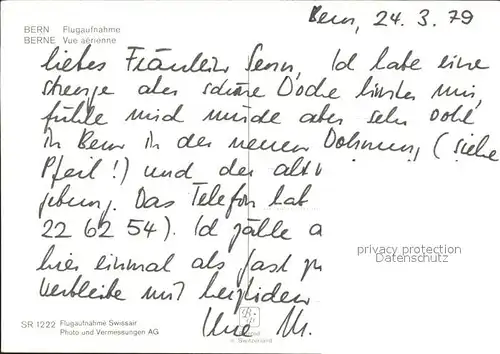 BERN Flugaufnahme
BERNE Vue aérienne
Bern, 24. 3. 79
liebes Fräulein Senn, Ich habe eine
strenge aber schöne Woche hinter mir,
fühle mich müde aber sehr wohl
in Bern in der neuen Wohnung (siehe
Pfeil!) und der alt
gebung. Das Telefon hat
22 62 54). Ich
hier einmal als Gast
verbleibe mit herzlichen
Ihre M.
privacy protection
SR 1222 Flugaufnahme Swissair
Photo und Vermessungen AG
in Switzerland